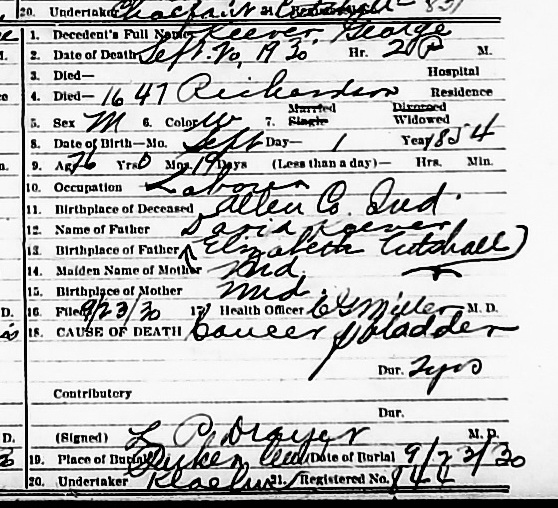 20. Undertaker
1. Decedent's Full Name Keever George
2. Date of Death Sept. 20, 1930 Hr. 2 P M.
3. Died— Hospital
4. Died— 1647 Richardson Residence
5. Sex M 6. Color W 7. Married Single Divorced Widowed
8. Date of Birth—Mo. Sept Day— 1 Year 1854
9. Age 76 Yrs. 0 Mos. 19 Days (Less than a day)— Hrs. Min.
10. Occupation Laborer
11. Birthplace of Deceased Allen Co. Ind.
12. Name of Father David Keever
13. Birthplace of Father Elizabeth Cutshall
14. Maiden Name of Mother Md
15. Birthplace of Mother Md.
16. Filed 9/23/30 17. Health Officer E G Miller M. D.
18. CAUSE OF DEATH Cancer Bladder
Dur. 2 yrs
Contributory
Dur.
(Signed) L P Drayer M. D.
19. Place of Burial Date of Burial 9/23/30
20. Undertaker Klaehn 21. Registered No. 844